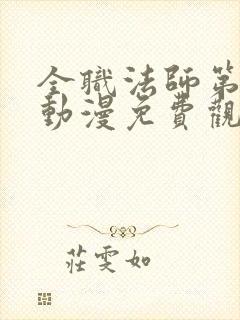 全職法師第
動漫免費觀
莊雯如